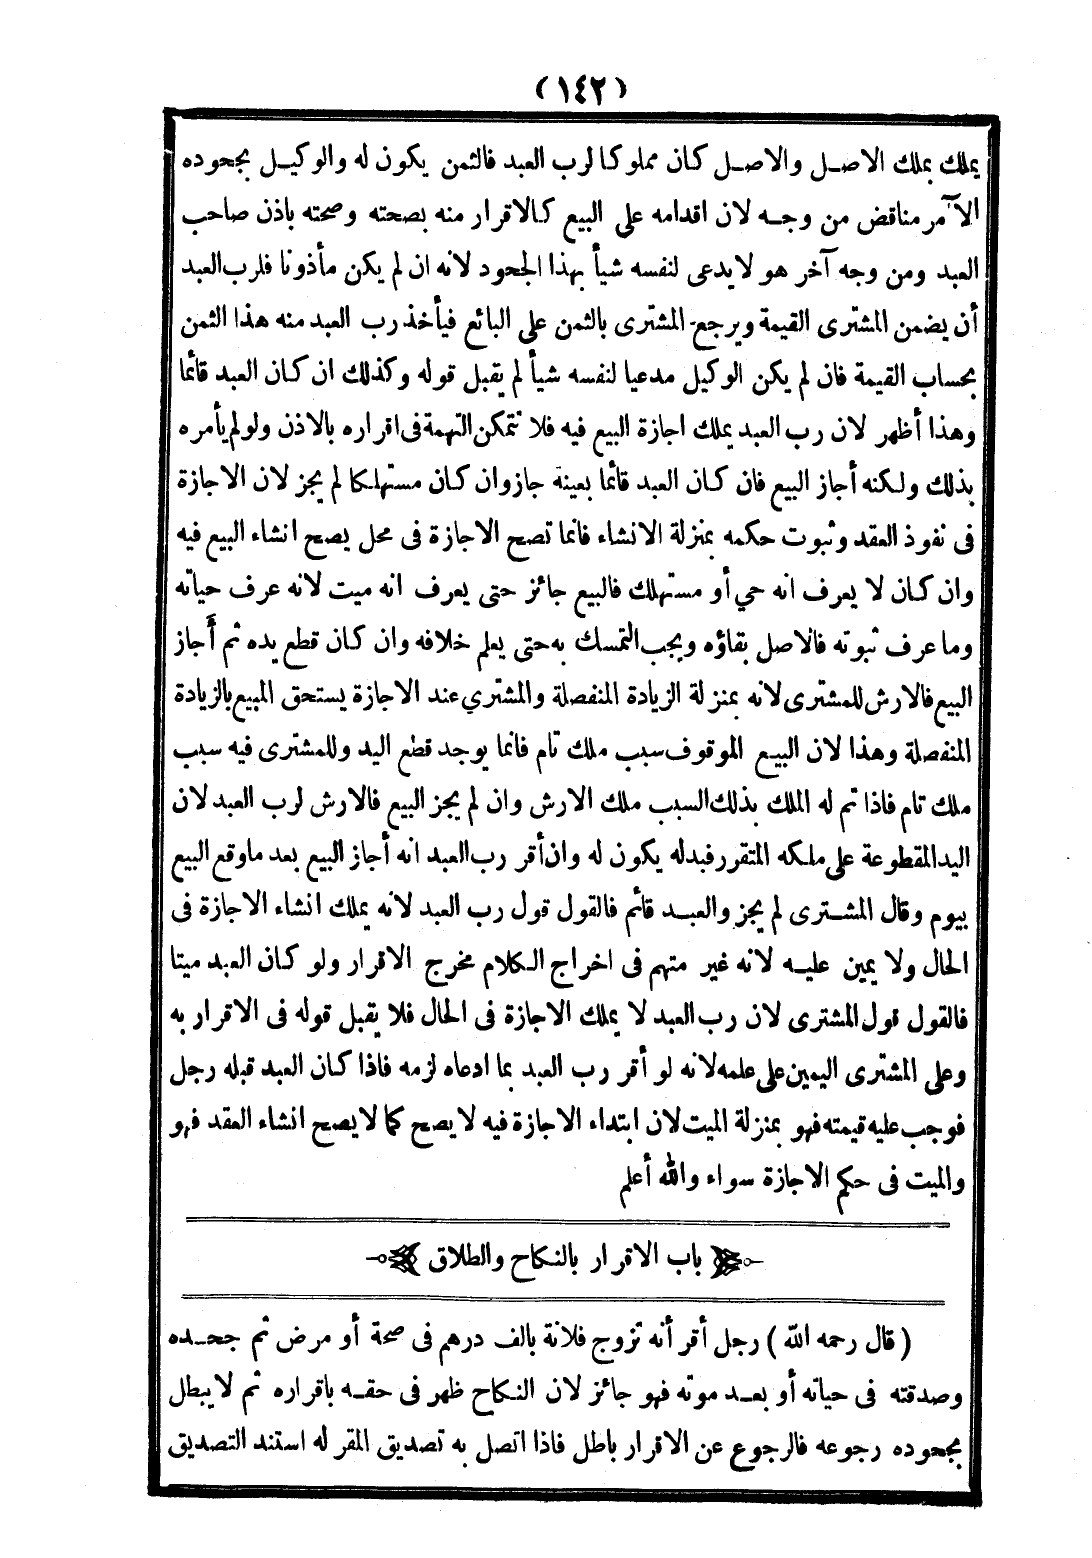 (١٤٢)
يملك بملك الاصل والاصل كان مملوكا لرب العبد فالثمن يكون له والوكيل بجحوده
الآمر مناقض من وجه لان اقدامه على البيع كالاقرار منه بصحته وصحته باذن صاحب
العبد ومن وجه آخر هو لا يدعى لنفسه شيأ بهذا الجحود لانه ان لم يكن مأذونا فلرب العبد
أن يضمن المشترى القيمة ويرجع المشترى بالثمن على البائع فيأخذ رب العبد منه هذا الثمن
بحساب القيمة فان لم يكن الوكيل مدعيا لنفسه شيأ لم يقبل قوله وكذلك ان كان العبد قائما
وهذا أظهر لان رب العبد يملك اجازة البيع فيه فلا تتمكن التهمة فى اقراره بالاذن ولو لم يأمره
بذلك ولكنه أجاز البيع فان كان العبد قائما بعينه جاز وان كان مستهلكا لم يجز لان الاجازة
فى نفوذ العقد وثبوت حكمه بمنزلة الانشاء فانما تصح الاجازة فى محل يصح انشاء البيع فيه
وان كان لا يعرف انه حي أو مستهلك فالبيع جائز حتى يعرف انه ميت لانه عرف حياته
وما عرف ثبوته فالاصل بقاؤه ويجب التمسك به حتى يعلم خلافه وان كان قطع يده ثم أجاز
البيع فالارش للمشترى لانه بمنزلة الزيادة المنفصلة والمشتري عند الاجازة يستحق المبيع بالزيادة
المنفصلة وهذا لان البيع الموقوف سبب ملك تام فانما يوجد قطع اليد وللمشترى فيه سبب
ملك تام فاذا تم له الملك بذلك السبب ملك الارش وان لم يجز البيع فالارش لرب العبد لان
اليد المقطوعة على ملكه المتقرر فبدله يكون له وان أقر رب العبد انه أجاز البيع بعد ما وقع البيع
بيوم وقال المشترى لم يجز والعبد قائم فالقول قول رب العبد لانه يملك انشاء الاجازة فى
الحال ولا يمين عليه لانه غير متهم فى اخراج الكلام مخرج الاقرار ولو كان العبد ميتا
فالقول قول المشترى لان رب العبد لا يملك الاجازة فى الحال فلا يقبل قوله فى الاقرار به
وعلى المشترى اليمين على علمه لانه لو أقر رب العبد بما ادعاه لزمه فاذا كان العبد قبله رجل
فوجب عليه قيمته فهو بمنزلة الميت لان ابتداء الاجازة فيه لا يصح كما لا يصح انشاء العقد فهو
والميت فى حكم الاجازة سواء والله أعلم
باب الاقرار بالنكاح والطلاق
( قال رحمه الله ) رجل أقر أنه تزوج فلانة بالف درهم فى صحة أو مرض ثم جحده
وصدقته فى حياته أو بعد موته فهو جائز لان النكاح ظهر فى حقه باقراره ثم لا يبطل
بجحوده رجوعه فالرجوع عن الاقرار باطل فاذا اتصل به تصديق المقر له استند التصديق